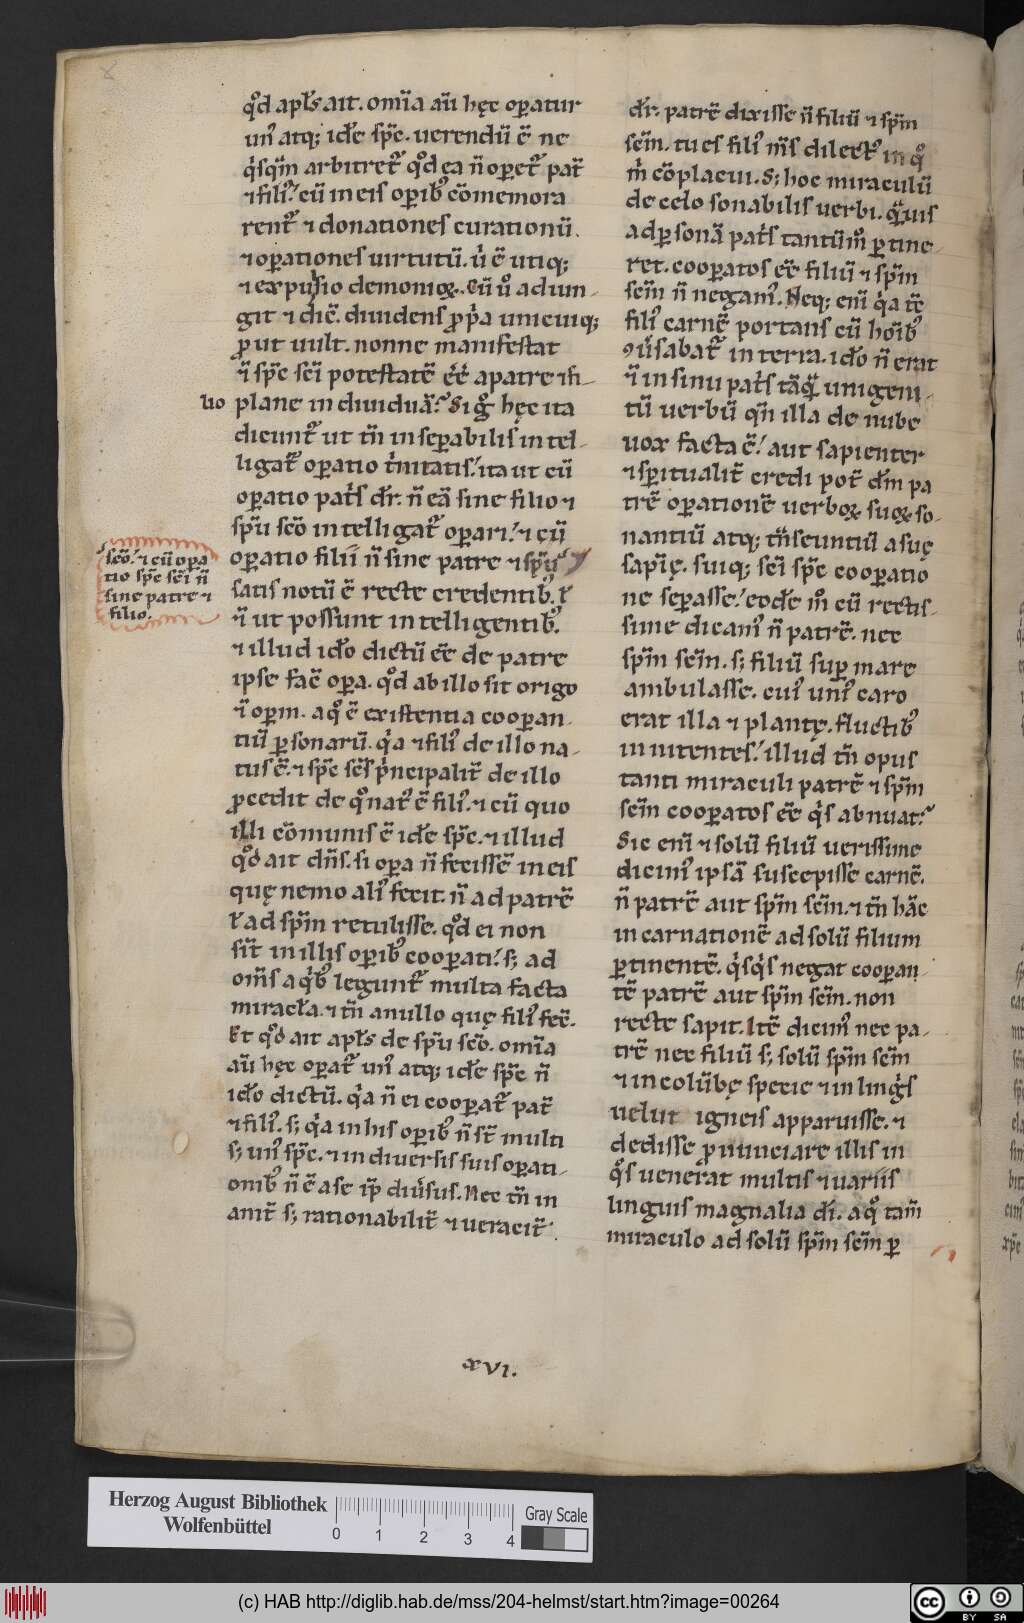 qͦd apɫs ait. omīa aū hęc oꝑatur
unꝰ atq; idē spc̄. uerendū ē ne
qͥsqͣm arbitret᷑ qͦd ea n̄ oꝑet᷑ pat̄
⁊ filiꝰ. cū in eis oꝑibꝰ cōmemora
rent᷑ ⁊ donationes curationū.
⁊ oꝑationes uirtutū. ubͥ ē utiq;
⁊ expulsio demonioꝝ. Cū uͦ adiun-
git ⁊ dic̄. diuidens ꝓpͥa unicuiq;
ꝓut uult. nonne manifestat
⁊ī spc̄ sc̄i potestatē eē apatre ⁊ fi-
lio plane indiuiduā? Sigͦ hęc ita
dicunt᷑ ut tn̄ inseꝑabilis intel-
ligat᷑ oꝑatio tͥnitatis. ita ut cū
oꝑatio patͥs dr̄. n̄ eā sine filio ⁊
spū sc̄o intelligat᷑ oꝑari. ⁊ cū
oꝑatio filii n̄ sine patre ⁊ spū
sc̄o. ⁊ cū oꝑa
tio spc̄ sc̄i n̄
sine patre ⁊
filio.
satis notū ē recte credentibꝰ. ɫ
⁊ī ut possunt intelligentibꝰ.
⁊ illud idō dictū eē de patre
ipse fac̄ oꝑa. qͦd ab illo sit origo
⁊ī oꝑm. a qͦ ē existentia cooꝑan-
tiū ꝑsonarū. qͥa ⁊ filiꝰ de illo na-
tus ē. ⁊ spc̄ sc̄s pͥncipalit̄ de illo
ꝓcedit de qͦ natꝰ ē filiꝰ. ⁊ cū quo
illi cōmunis ē idē spc̄. ⁊ illud
qͦd ait dn̄s. si oꝑa n̄ fecissē in eis
quę nemo aliꝰ fecit. n̄ ad patrē
ɫ ad spm̄ retulisse. qͦd ei non
sīt in illis oꝑibꝰ cooꝑati. s; ad
om̄s a qͥbꝰ legunt᷑ multa facta
miracɫa. ⁊ tn̄ a nullo quę filiꝰ fec̄.
Et qͦd ait apɫs de spū sc̄o. omīa
aū hęc oꝑat᷑ unꝰ atq; idē spc̄ n̄
idō dictū. qͥa n̄ ei cooꝑat᷑ pat̄
⁊ filiꝰ. s; qͥa in his oꝑibꝰ n̄ st̄ multi
s; unꝰ spc̄. ⁊ in diuersis suis oꝑati-
onibꝰ n̄ ē a se ip̄ diuͥsus. Nec tn̄ in
anit̄ s; rationabilit̄ ⁊ ueracit̄.
dr̄. patrē dixisse n̄ filiū ⁊ spm̄
sc̄m. tu es filiꝰ ms̄ dilectꝰ in qͦ
mͥ cōplacui. S; hoc miraculū
de cęlo sonabilis uerbi. qͣuis
ad ꝑsonā patͥs tantūmͦ ꝑtine-
ret. cooꝑatos eē filiū ⁊ spm̄
sc̄m n̄ negamꝰ. Neq; enī qͥa tc̄
filiꝰ carnē portans cū hoībꝰ
ꝯuͥsabat᷑ in terra. idō n̄ erat
⁊ī in sinu patͥs tāqͣ unigeni-
tū uerbū qn̄ illa de nube
uox facta ē. aut sapienter
⁊ spiritualit̄ credi pot̄ dm̄ pa
trē oꝑationē uerboꝝ suoꝝ so-
nantiū atq; tͣnseuntiū a suę
sapīę. suiq; sc̄i spc̄ cooꝑatio
ne seꝑasse. eodē mͦ cū rectis-
sime dicamꝰ n̄ patrē. nec
spm̄ sc̄m. s; filiū suꝑ mare
ambulasse. cuiꝰ unīꝰ caro
erat illa ⁊ plantę. fluctibꝰ
innitentes. illud tn̄ opus
tanti miraculi patrē ⁊ spm̄
sc̄m cooꝑatos eē qͥs abnuat?
Sic enī ⁊ solū filiū uerissime
dicimꝰ ipsā suscepisse carnē.
n̄ patrē aut spm̄ sc̄m. ⁊ tn̄ hāc
incarnationē ad solū filium
ꝑtinentē. qͥsqͥs negat cooꝑan-
tē patrē aut spm̄ sc̄m. non
recte sapit. Itē dicimꝰ nec pa-
trē nec filiū s; solū spm̄ sc̄m
⁊ in colūbę specie ⁊ in lingͥs
uelut igneis apparuisse. ⁊
dedisse ꝓnunciare illis in
qͦs uenerat multis ⁊ uariis
linguis magnalia di̅. a qͦ tam̄
miraculo ad solū spm̄ sc̄m ꝑ
xvi.
Herzog August Bibliothek
Wolfenbüttel
0 1 2 3 4
Gray Scale
(c) HAB http://diglib.hab.de/mss/204-helmst/start.htm?image=00264
cc BY SA